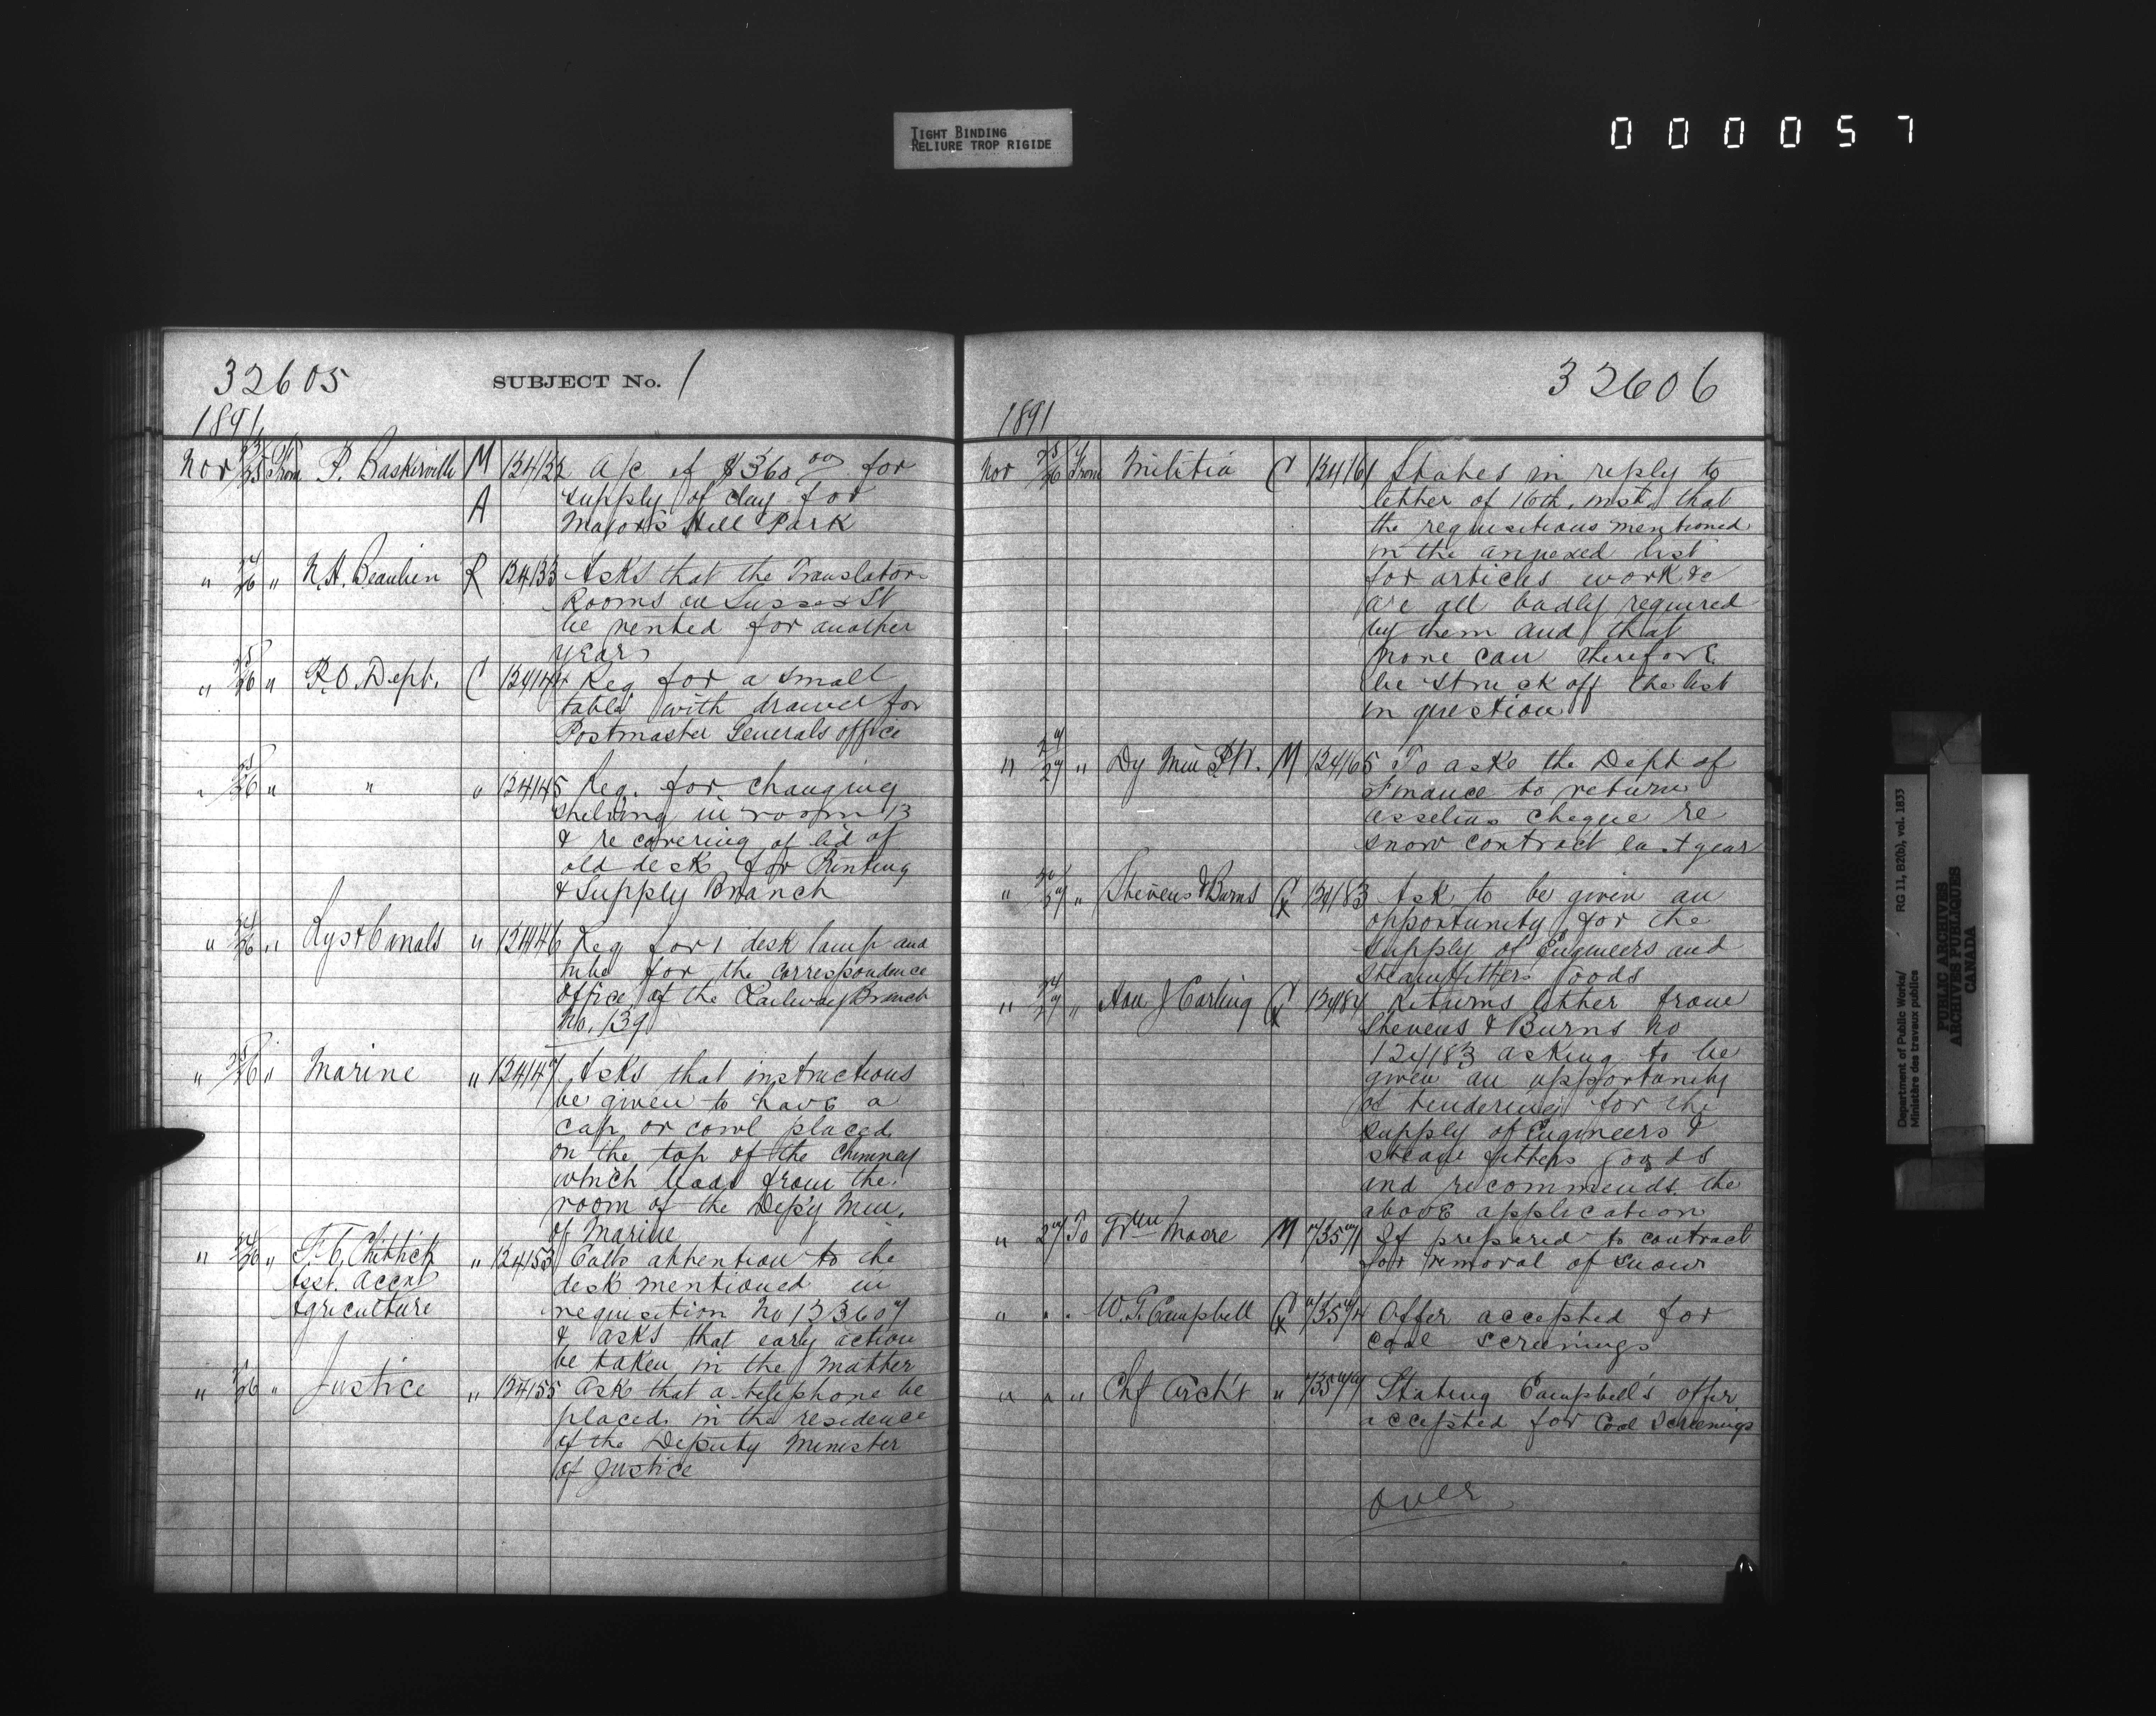 TIGHT BINDING
RELIURE TROP RIGIDE
000057
32605 SUBJECT No. 1
1891
Nov 23/25 From P. Baskerville M 124132 A/c of $360 00 for
A supply of clay for
Major's Hill Park
" 24/26 " N.A. Beaulien R 124133 Asks that the Translators
Rooms on Sussex St
be rented for another
year
" 25/26 " P.O. Dept. C 124144 Req for a small
table with drawer for
Postmaster Generals office
" 25/26 " " " 124145 Req. for changing
shelving in room 13
& re covering of lid of
old desk for Printing
& Supply Branch
" 24/26 " Rys & Canals " 124146 Req for 1 desk lamp and
tube for the correspondence
Office of the Railway Branch
No. 139
" 25/26 " Marine " 124147 Asks that instructions
be given to have a
cap or cowl placed
on the top of the chimney
which leads from the
room of the Dep'y Min.
of Marine
" 24/26 " F.C. Chittick " 124153 Calls attention to the
Asst. Accnt desk mentioned in
Agriculture requisition No 133607
& asks that early action
be taken in the matter
" /26 " Justice " 124155 Ask that a telephone be
placed in the residence
of the Deputy Minister
of Justice
32606
1891
Nov 25/26 From Militia C 124161 States in reply to
letter of 16th. inst. that
the requisitions mentioned
in the annexed list
for articles work &c
are all badly required
by them and that
none can therefore
be struck off the list
in question
" 27 " Dy Min P.W. M 124165 To asks the Dept of
Finance to return
Asselins cheque re
snow contract last year
" 27 " Stevens & Burns 124183 Ask to be given an
opportunity for the
supply of Engineers and
steamfitters goods
" 24/27 " Hon J Carling 124184 Returns letter from
Stevens & Burns No
124183 asking to be
given an opportunity
of tendering for the
supply of Engineers &
steam fitters goods
and recommends the
above application
" 27 To Wm Moore M If prepared to contract
for removal of snow
" " " W. G. Campbell Offer accepted for
coal screenings
" " " Chf Arch't " Stating Campbell's offer
accepted for Coal Screenings
over
Department of Public Works/ RG 11, B2(b), vol. 1833
Ministère des travaux publics
PUBLIC ARCHIVES
ARCHIVES PUBLIQUES
CANADA